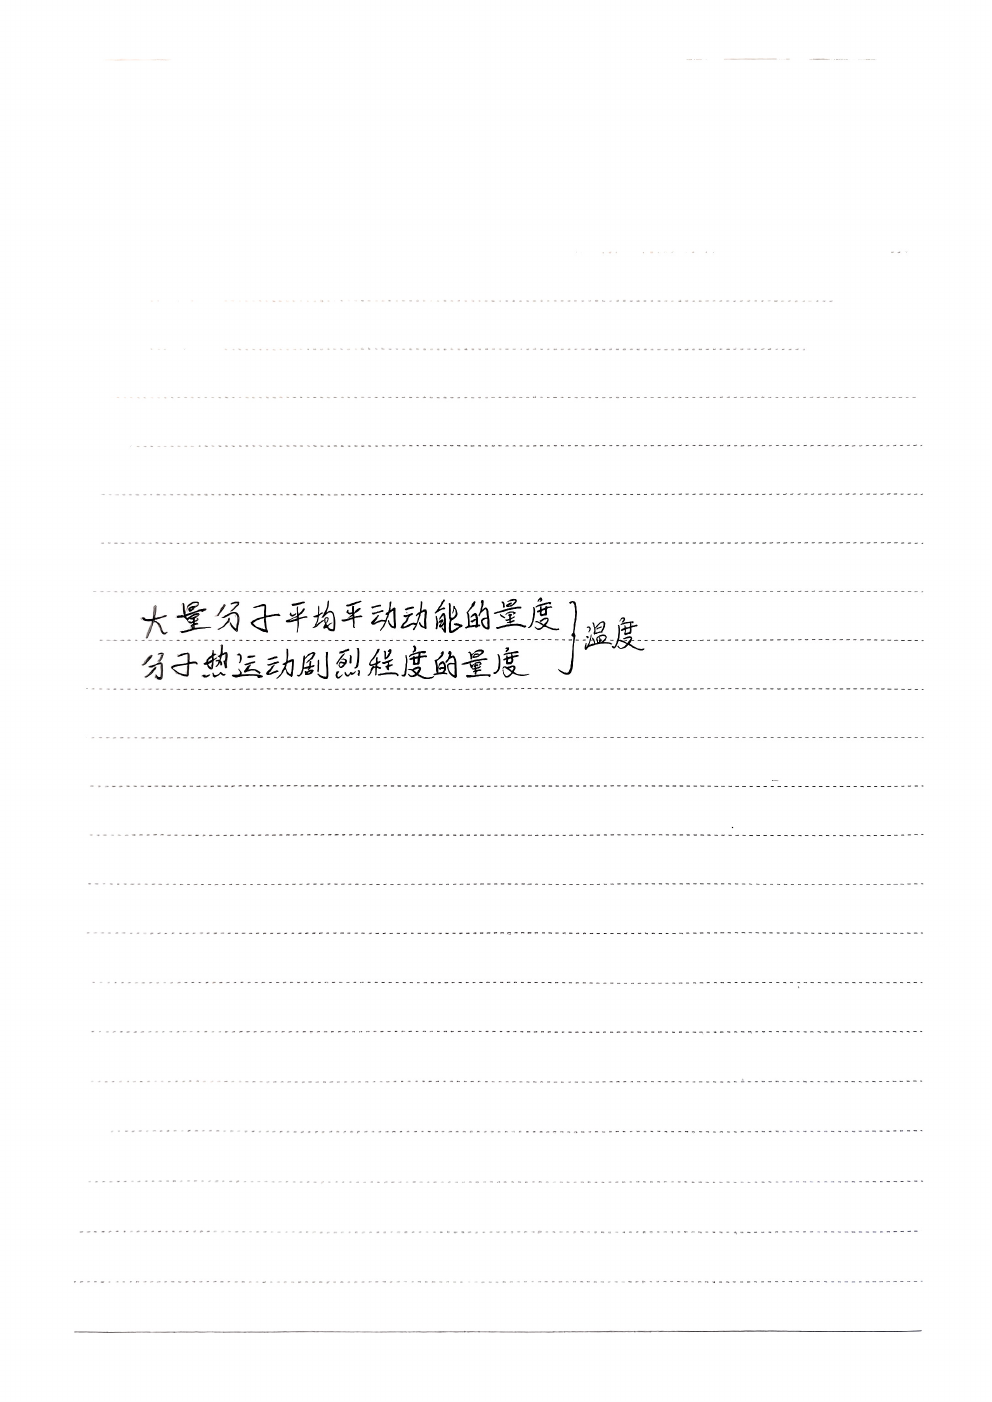 大量分子平均平动动能的量度
分子热运动剧烈程度的量度
}温度